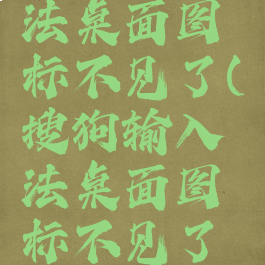 法桌面图
标不见了(
搜狗输入
法桌面图
标不见了